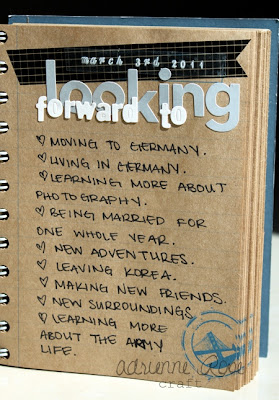 march 3rd 2011
looking
forward to
♡ MOVING TO GERMANY.
♡ LIVING IN GERMANY.
♡ LEARNING MORE ABOUT
PHOTOGRAPHY.
♡ BEING MARRIED FOR
ONE WHOLE YEAR.
♡ NEW ADVENTURES.
♡ LEAVING KOREA.
♡ MAKING NEW FRIENDS.
♡ NEW SURROUNDINGS
♡ LEARNING MORE
ABOUT THE ARMY
LIFE.
adrienne
craft